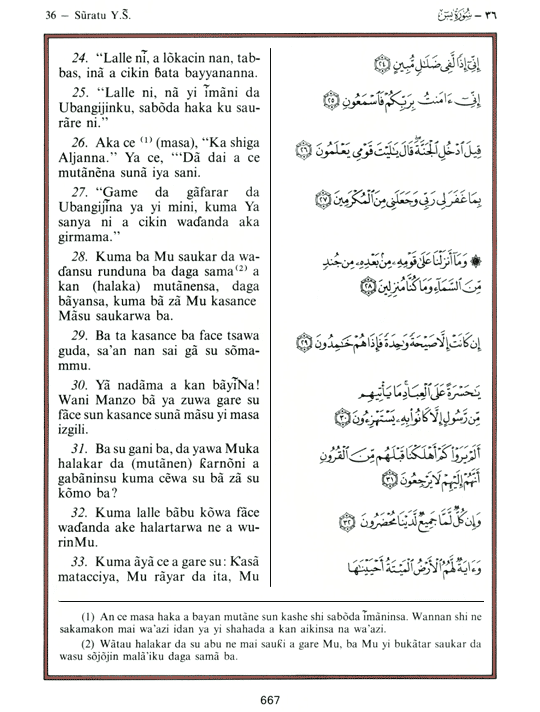 36 — Sūratu Y.S̃.
٣٦ – سُورَةُ يسٓ
24. “Lalle nĩ, a lõkacin nan, tab-
bas, inã a cikin ɓata bayyananna.
25. “Lalle ni, nã yi ĩmãni da
Ubangijinku, sabõda haka ku sau-
rãre ni.”
26. Aka ce (1) (masa), “Ka shiga
Aljanna.” Ya ce, “‘Dã dai a ce
mutãnẽna sunã iya sani.
27. “Game da gãfarar da
Ubangijĩna ya yi mini, kuma Ya
sanya ni a cikin waɗanda aka
girmama.”
28. Kuma ba Mu saukar da wa-
ɗansu runduna ba daga sama(2) a
kan (halaka) mutãnensa, daga
bãyansa, kuma bã zã Mu kasance
Mãsu saukarwa ba.
29. Ba ta kasance ba face tsawa
guda, sa’an nan sai gã su sõma-
mmu.
30. Yã nadãma a kan bãyĩNa!
Wani Manzo bã ya zuwa gare su
fãce sun kasance sunã mãsu yi masa
izgili.
31. Ba su gani ba, da yawa Muka
halakar da (mutãnen) ƙarnõni a
gabãninsu kuma cẽwa su bã zã su
kõmo ba?
32. Kuma lalle bãbu kõwa fãce
waɗanda ake halartarwa ne a wu-
rinMu.
33. Kuma ãyã ce a gare su: Ƙasã
matacciya, Mu rãyar da ita, Mu
إِنِّىٓ إِذًا لَّفِى ضَلَٰلٍ مُّبِينٍ ﴿٢٤﴾
إِنِّىٓ ءَامَنتُ بِرَبِّكُمْ فَٱسْمَعُونِ ﴿٢٥﴾
قِيلَ ٱدْخُلِ ٱلْجَنَّةَ قَالَ يَٰلَيْتَ قَوْمِى يَعْلَمُونَ ﴿٢٦﴾
بِمَا غَفَرَ لِى رَبِّى وَجَعَلَنِى مِنَ ٱلْمُكْرَمِينَ ﴿٢٧﴾
۞ وَمَآ أَنزَلْنَا عَلَىٰ قَوْمِهِۦ مِنۢ بَعْدِهِۦ مِن جُندٍ
مِّنَ ٱلسَّمَآءِ وَمَا كُنَّا مُنزِلِينَ ﴿٢٨﴾
إِن كَانَتْ إِلَّا صَيْحَةً وَٰحِدَةً فَإِذَا هُمْ خَٰمِدُونَ ﴿٢٩﴾
يَٰحَسْرَةً عَلَى ٱلْعِبَادِ مَا يَأْتِيهِم
مِّن رَّسُولٍ إِلَّا كَانُوا۟ بِهِۦ يَسْتَهْزِءُونَ ﴿٣٠﴾
أَلَمْ يَرَوْا۟ كَمْ أَهْلَكْنَا قَبْلَهُم مِّنَ ٱلْقُرُونِ
أَنَّهُمْ إِلَيْهِمْ لَا يَرْجِعُونَ ﴿٣١﴾
وَإِن كُلٌّ لَّمَّا جَمِيعٌ لَّدَيْنَا مُحْضَرُونَ ﴿٣٢﴾
وَءَايَةٌ لَّهُمُ ٱلْأَرْضُ ٱلْمَيْتَةُ أَحْيَيْنَٰهَا
(1) An ce masa haka a bayan mutãne sun kashe shi sabõda ĩmãninsa. Wannan shi ne
sakamakon mai wa’azi idan ya yi shahada a kan aikinsa na wa’azi.
(2) Wãtau halakar da su abu ne mai sauƙi a gare Mu, ba Mu yi bukãtar saukar da
wasu sõjõjin malã’iku daga samã ba.
667